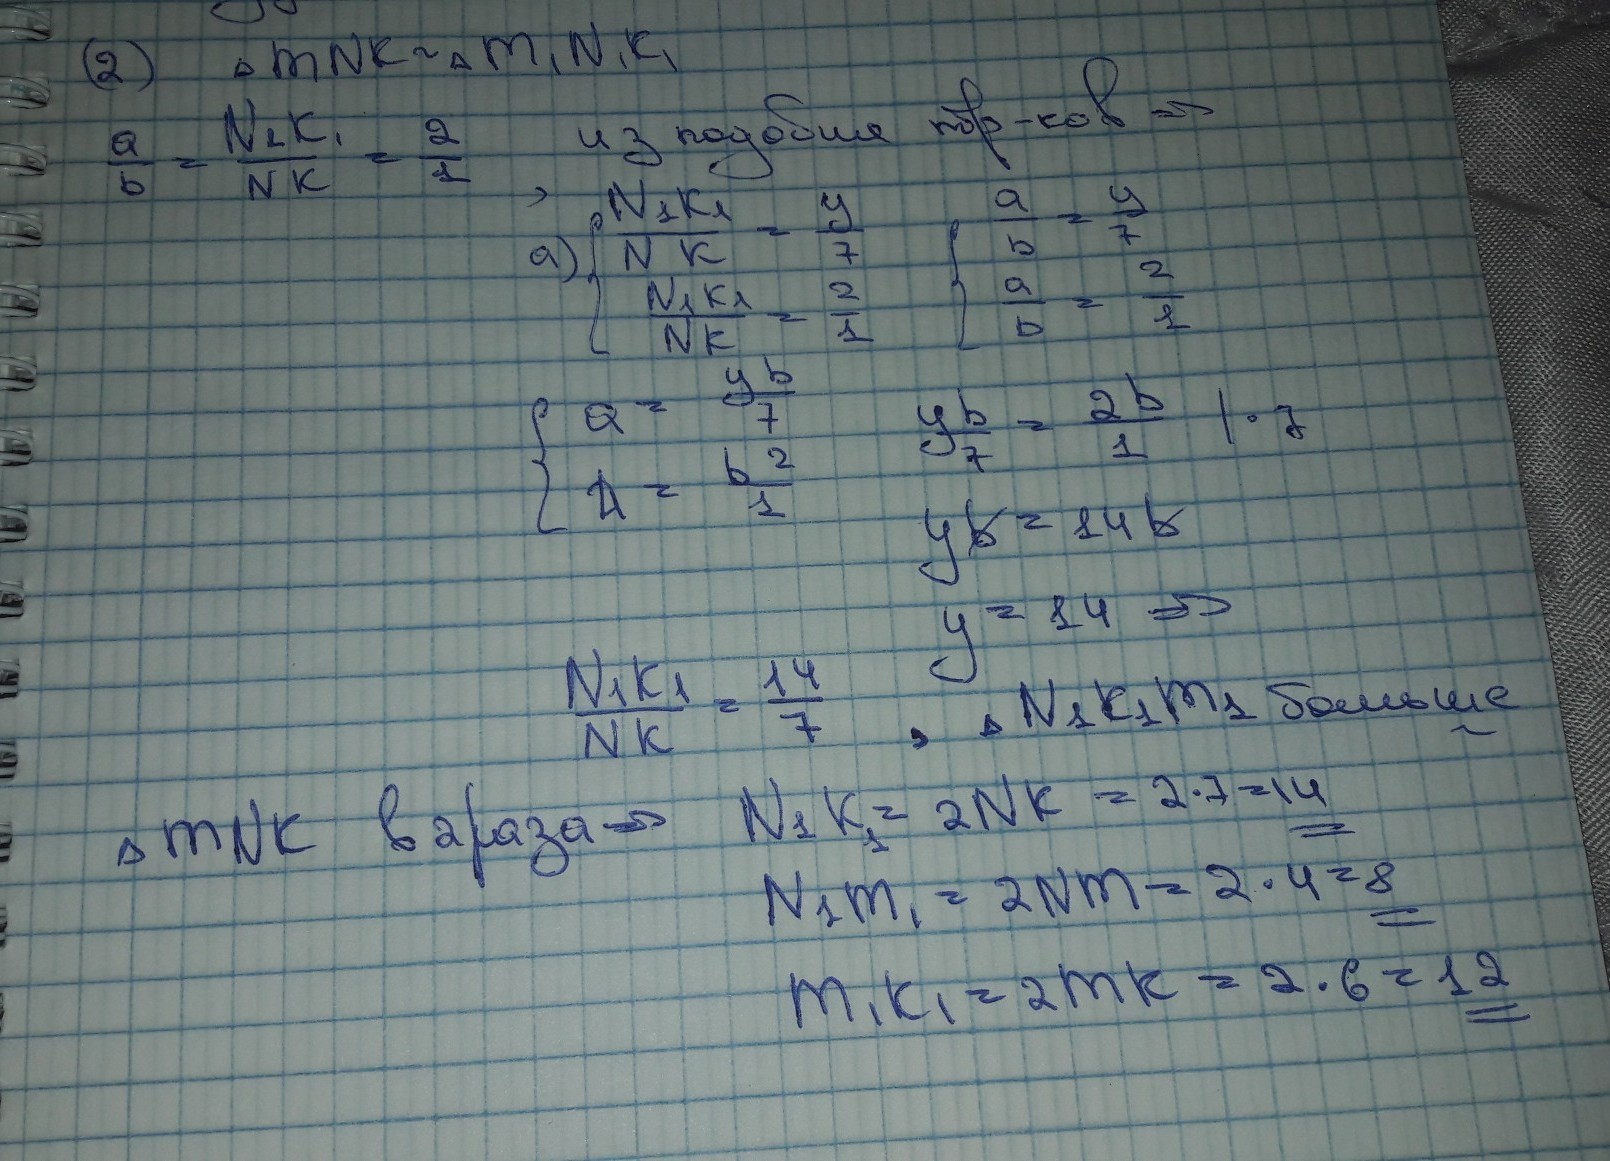 (2) ▵ MNK ~ ▵ M₁N₁K₁
a/b = N₁K₁/NK = 2/1, из подобия тр-ков =>
а) { N₁K₁/NK = y/7 { a/b = y/7
N₁K₁/NK = 2/1 a/b = 2/1
{ a = yb/7 yb/7 = 2b/1 | · 7
a = b2/1
yb = 14b
y = 14 =>
N₁K₁/NK = 14/7, ▵ N₁K₁M₁ больше
▵ MNK в 2 раза => N₁K₁ = 2NK = 2·7=14
N₁M₁ = 2NM = 2·4=8
M₁K₁ = 2MK = 2·6=12